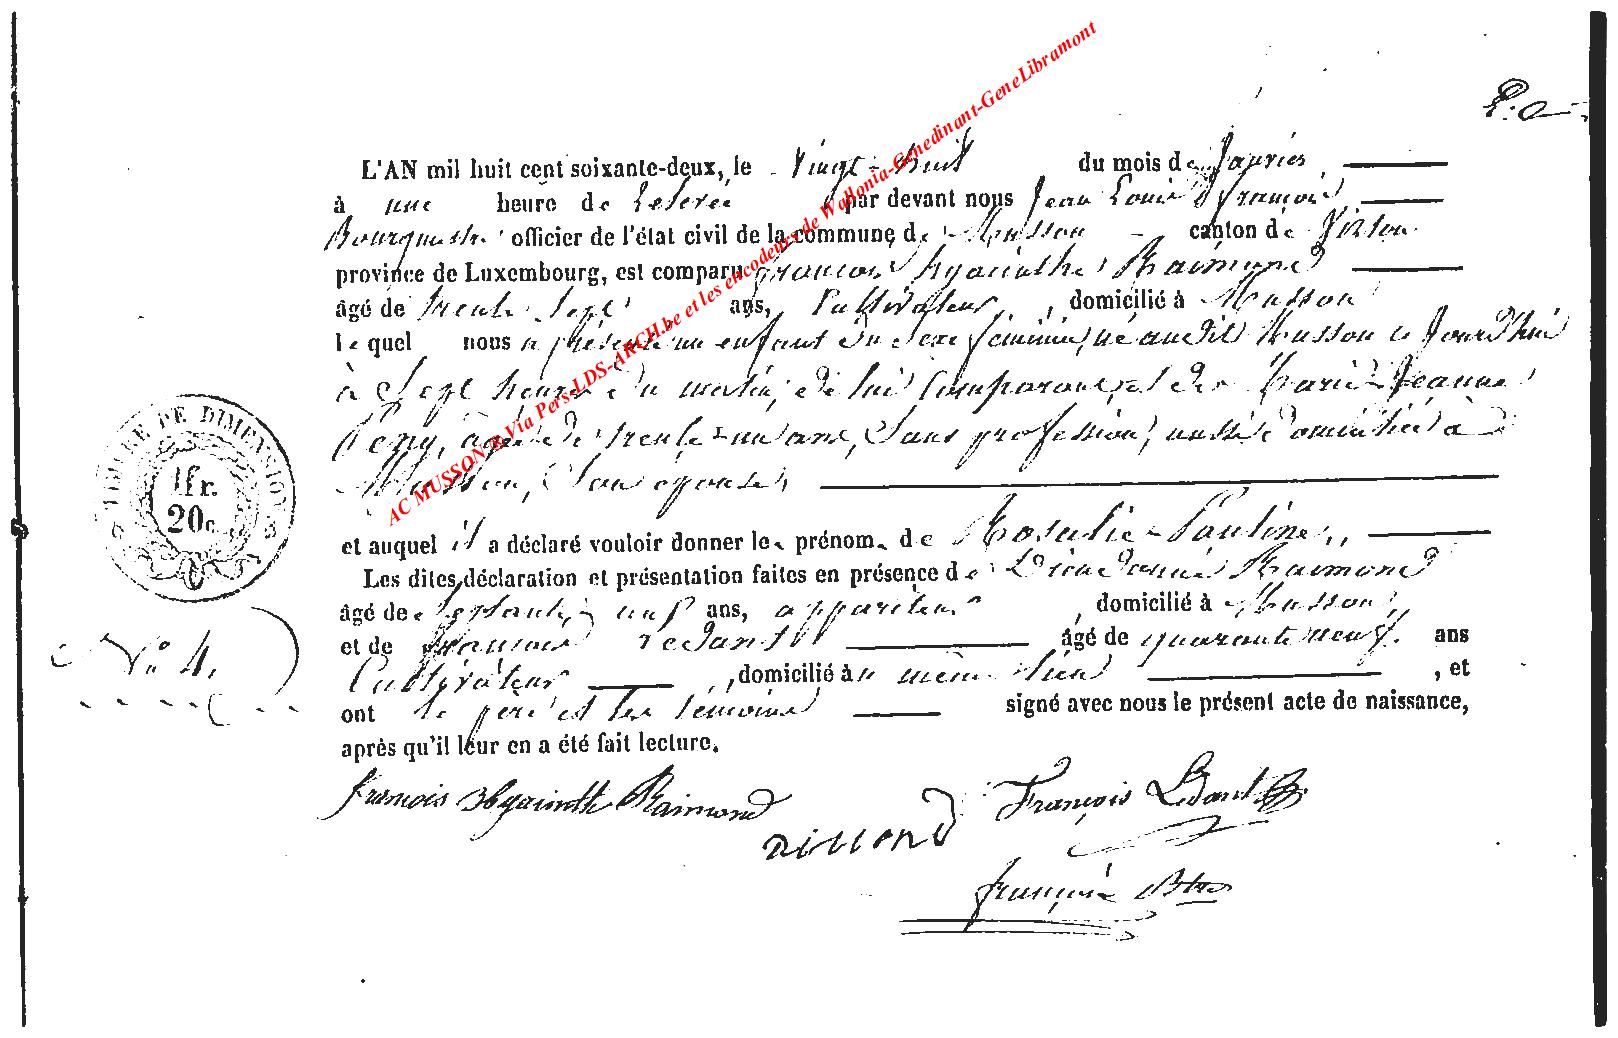 AC MUSSON & Via Pers-LDS-ARCH.be et les encodeurs de Wallonia-Genedinant-GeneLibramont
L'AN mil huit cent soixante-deux, le Vingt-huit du mois de Janvier
à une heure de relevée par devant nous Jean Louis François,
Bourgmestre officier de l'état civil de la commune de Musson canton de Virton
province de Luxembourg, est comparu François Hyacinthe Raimond
âgé de trente-sept ans, Cultivateur, domicilié à Musson
lequel nous a présenté un enfant du sexe féminin, né audit Musson ce Jourd'hui
à sept heures du matin, de lui Comparant, et de Marie-Jeanne
âgée de trente-un ans, Sans profession, aussi domiciliée à
Musson, Son épouse,
et auquel il a déclaré vouloir donner les prénoms de Rosalie-Pauline,
Les dites déclaration et présentation faites en présence de Dieudonné Raimond
âgé de septante-neuf ans, appariteur, domicilié à Musson,
et de François Ledant âgé de quarante neuf ans
Cultivateur, domicilié au même lieu, et
ont le père et les témoins signé avec nous le présent acte de naissance,
après qu'il leur en a été fait lecture.
TIMBRE DE DIMENSION
1fr.
20c.
No 4.
François Hyacinthe Raimond
François Ledant
François Btre